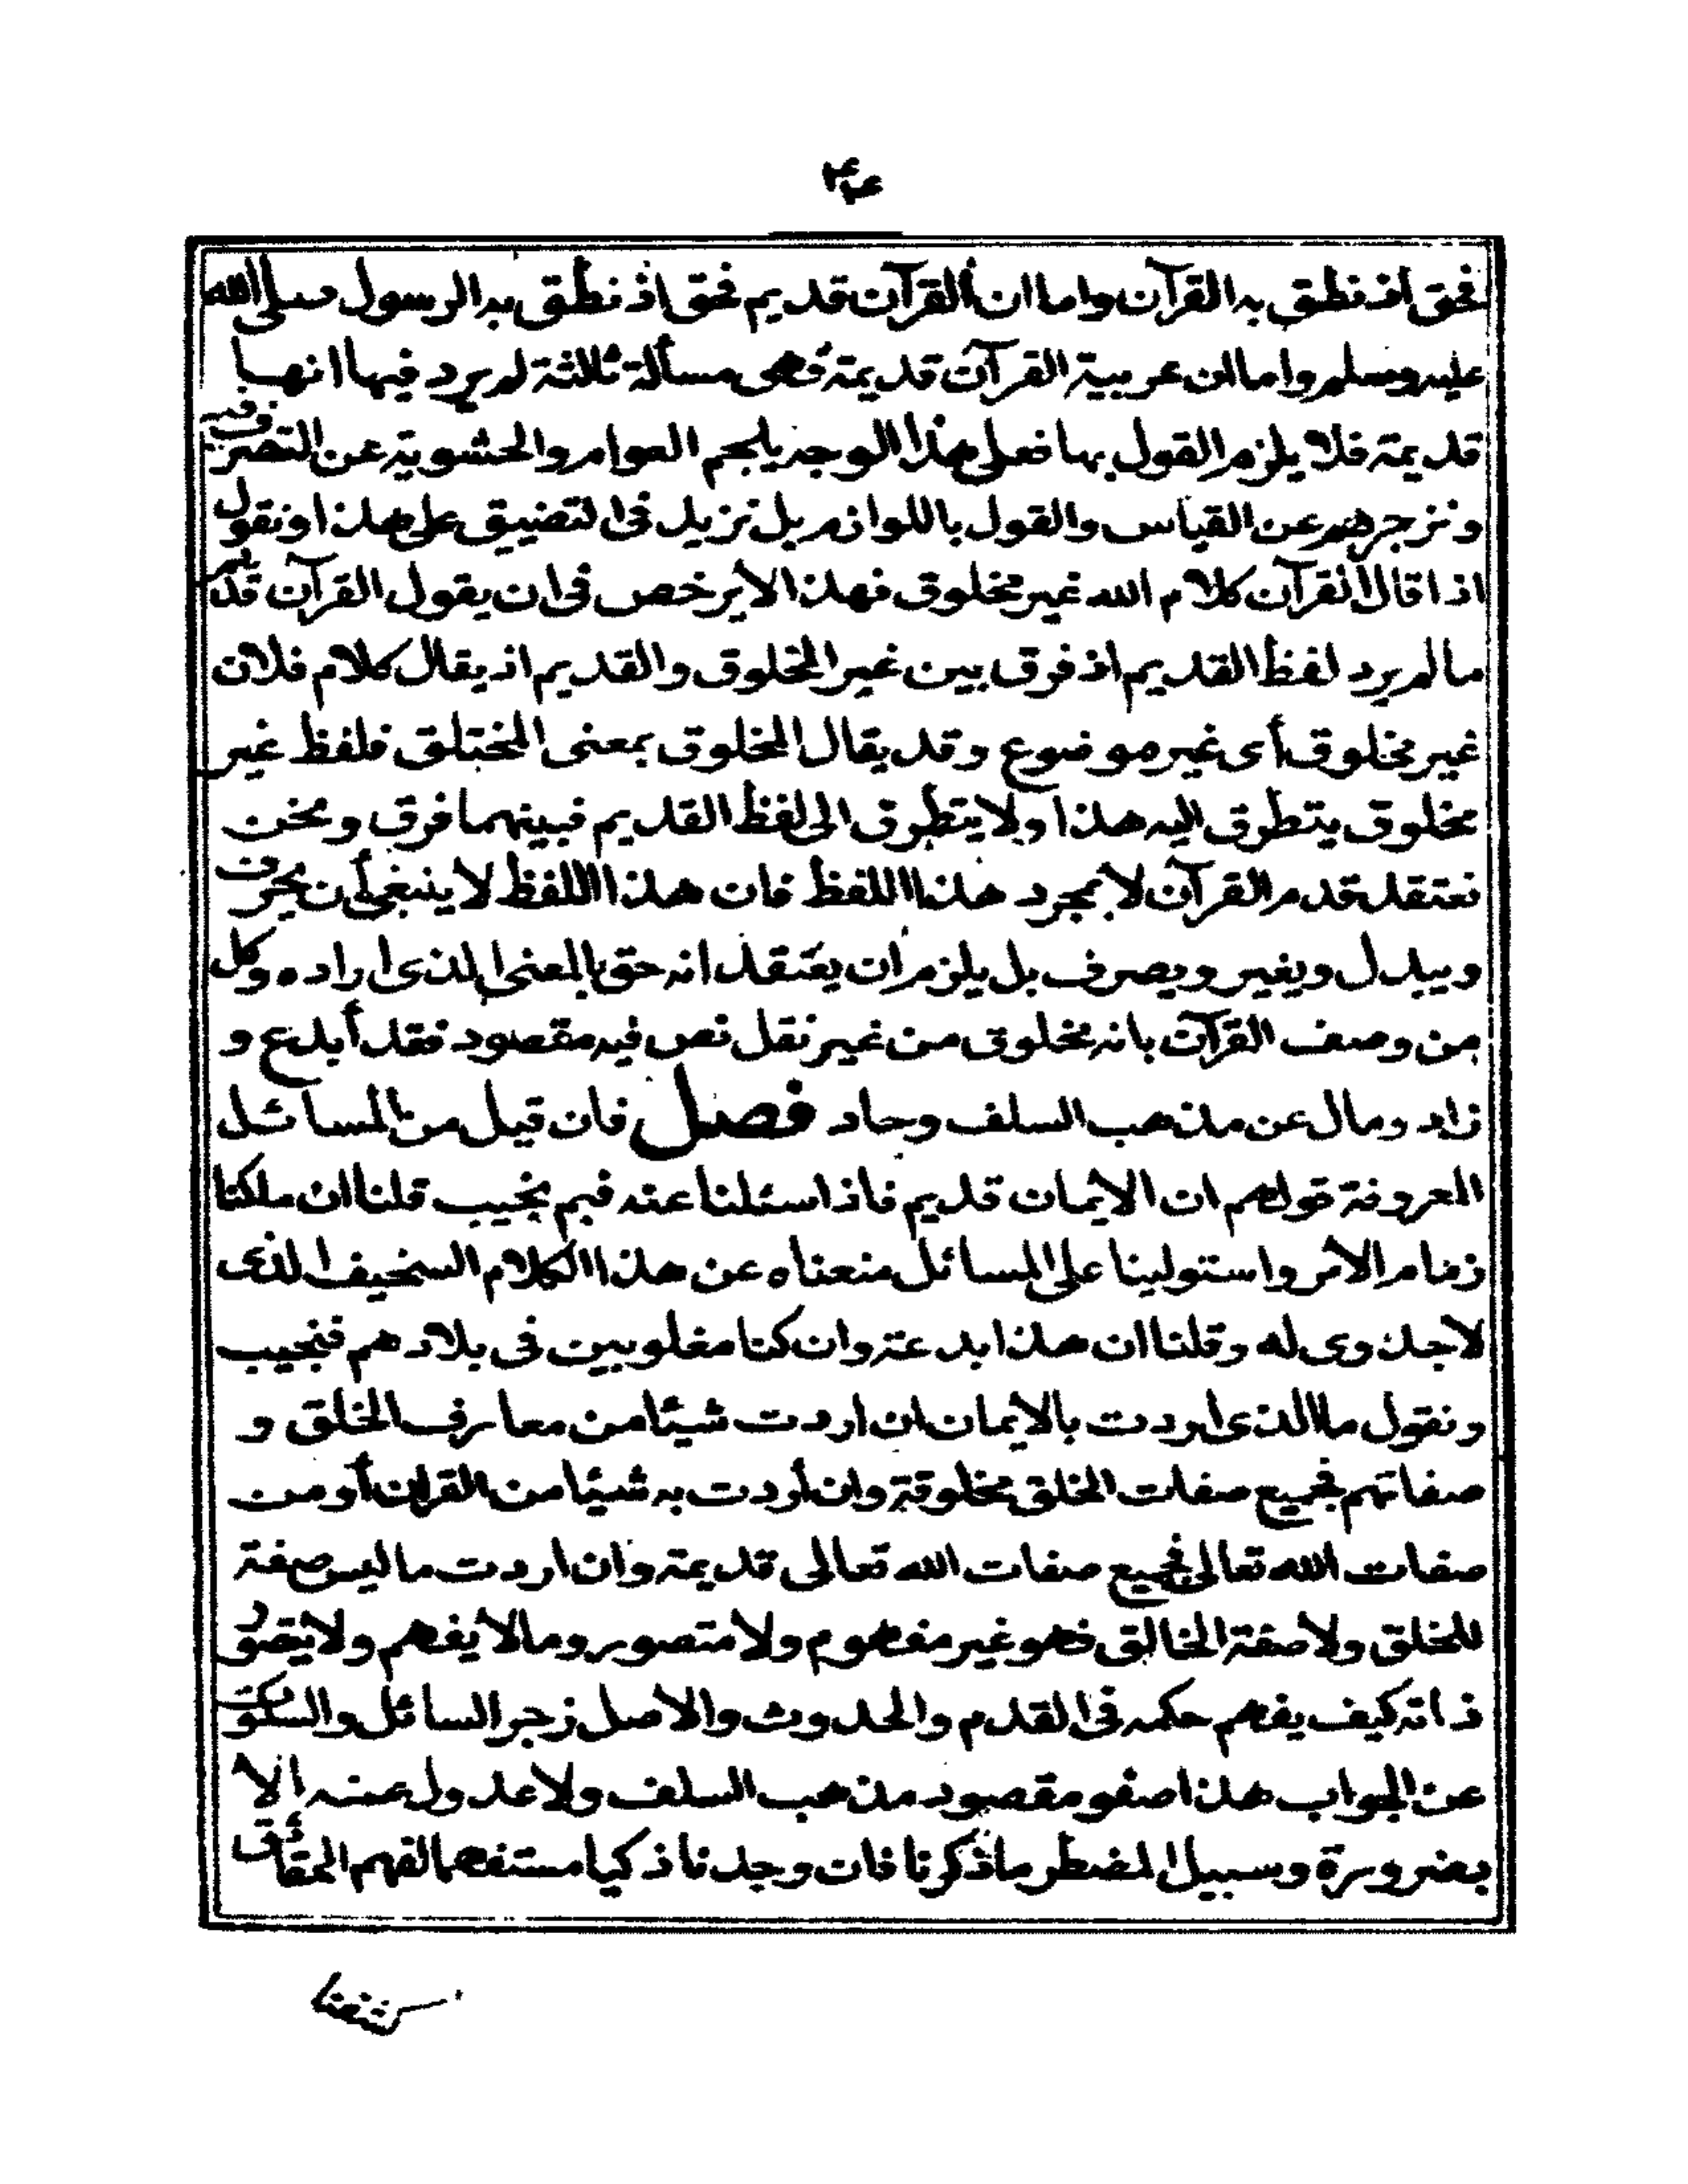 ٤٤
فحق اذ نطق به القرآن واما ان ألقرآن قديم فحق اذ نطق به الرسول صلى الله
عليه وسلم واما ان عربية القرآن قديمة فهى مسألة ثالثة لم يرد فيها انهـا
قديمة فلا يلزم القول بها فعلى هذا الوجه يلجم العوام والحشوية عن التصرف فيه
ونزجرهم عن القياس والقول باللوازم بل نزيد فى التضييق على هذا ونقول
اذا قال القرآن كلام الله غير مخلوق فهذا لا يرخص فى ان يقول القرآن قديم
ما لم يرد لفظ القديم اذ فرق بين غير المخلوق والقديم اذ يقال كلام فلان
غير مخلوق أى غير موضوع وقد يقال المخلوق بمعنى المختلق فلفظ غير
مخلوق يتطرق اليه هذا ولا يتطرق الى لفظ القديم فبينهما فرق ونحن
نعتقد قدم القرآن لا بمجرد هذا اللفظ فان هذا اللفظ لا ينبغى أن يحرف
ويبدل ويغير ويصرف بل يلزم ان يعتقد انه حق بالمعنى الذى اراده وكل
من وصف القرآن بانه مخلوق من غير نقل نص فيه مقصود فقد أبدع و
زاد ومال عن مذهب السلف وحاد فصل فان قيل من المسائل
المعروفة قولهم ان الايمان قديم فاذا سئلنا عنه فبم نجيب قلنا ان ملكنا
زمام الامر واستولينا على المسائل منعناه عن هذا الكلام السخيف الذى
لا جدوى له وقلنا ان هذا بدعة وان كنا مغلوبين فى بلادهم فنجيب
ونقول ما الذى اردت بالايمان ان اردت شيئا من معارف الخلق و
صفاتهم فجميع صفات الخلق مخلوقة وان أردت به شيئا من القرآن أو من
صفات الله تعالى فجميع صفات الله تعالى قديمة وان اردت ما ليس صفة
للخلق ولا صفة الخالق فهو غير مفهوم ولا متصور وما لا يفهم ولا يتصور
ذاته كيف يفهم حكمه فى القدم والحدوث والاصل زجر السائل والسكوت
عن الجواب هذا صفو مقصود مذهب السلف ولا عدول عنه الا
بضرورة وسبيل المضطر ما ذكرنا فان وجدنا ذكيا مستفهما لفهم الحقائق